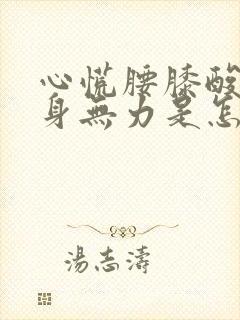 心慌腰膝酸
身無力是怎
湯志濤